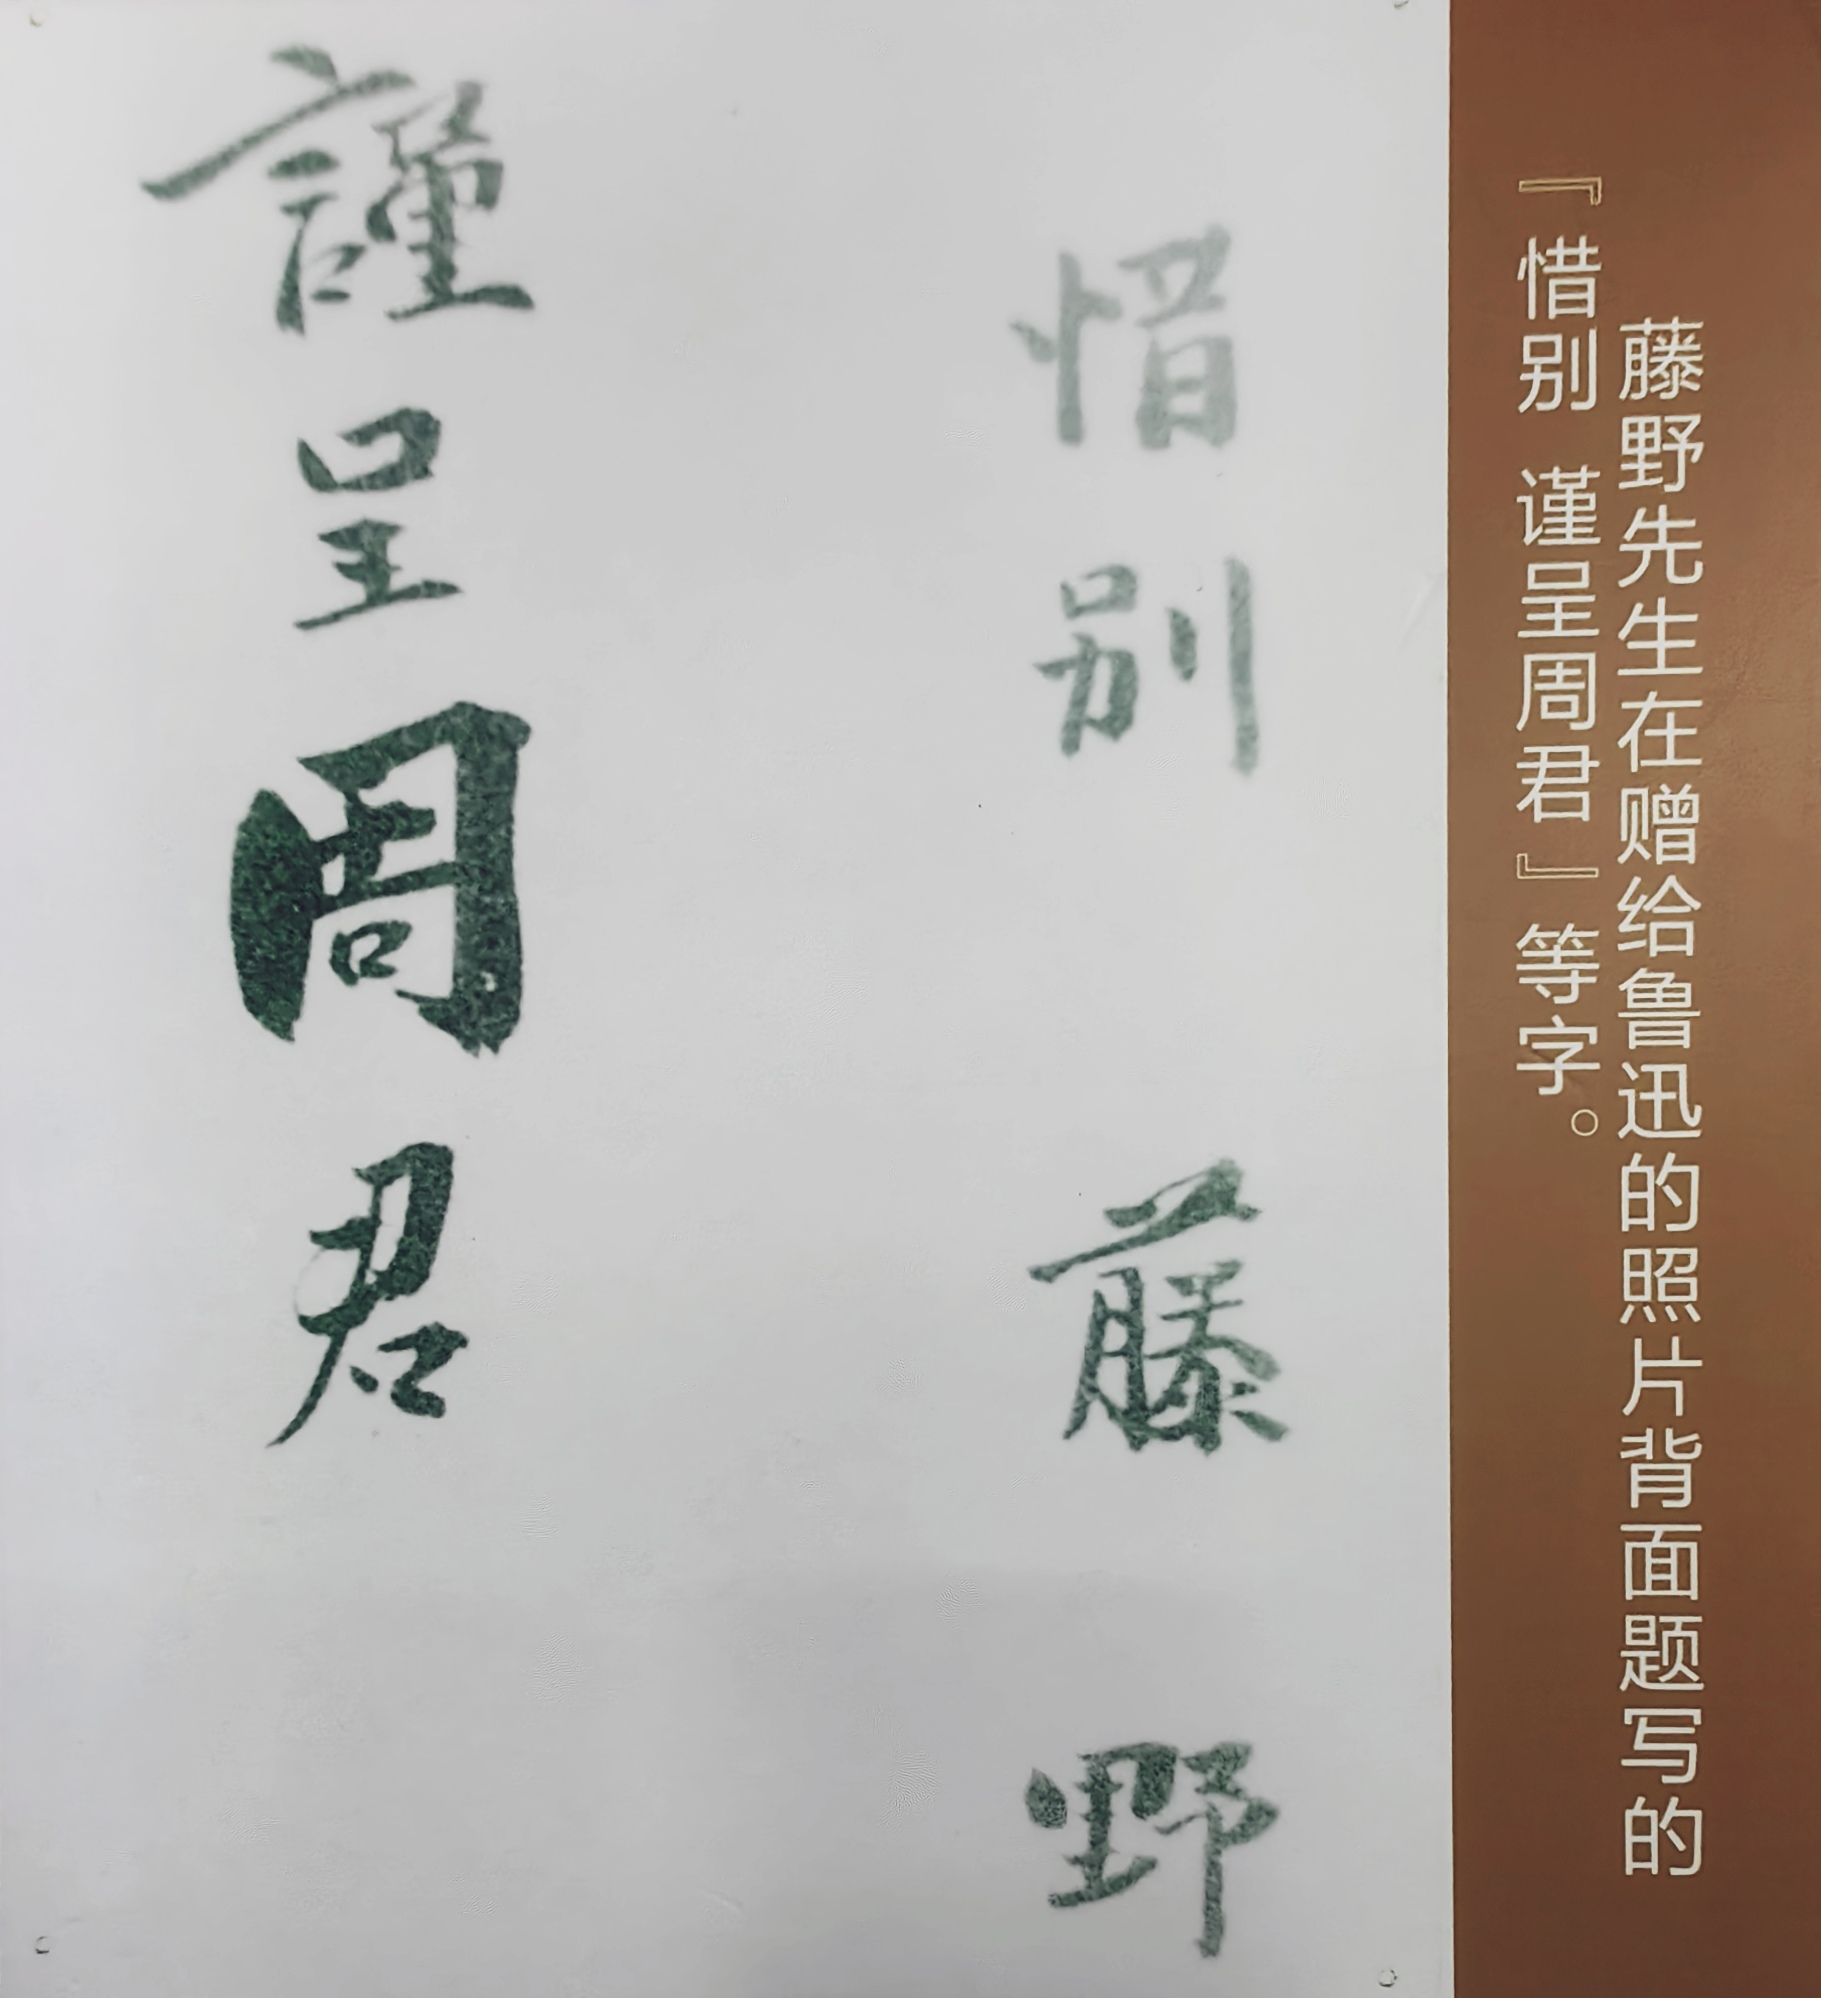 藤野先生在赠给鲁迅的照片背面题写的
『惜别 谨呈周君』等字。
惜别 藤野
謹呈周君